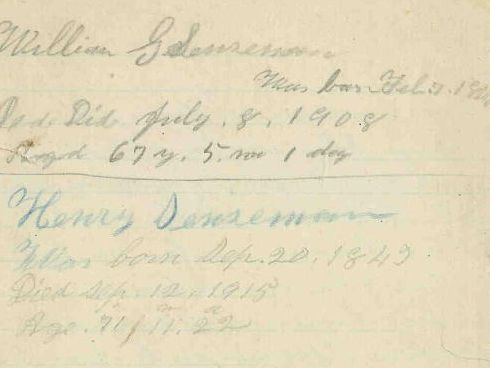 William G Senseman
Was born Feb. 7.
Did July. 8. 1908
Aged 67 y. 5. m 1 day
Henry Senseman
Was born Sep. 20. 1843
Died Sep. 12. 1915
Age. 71 y 11. m 22 d